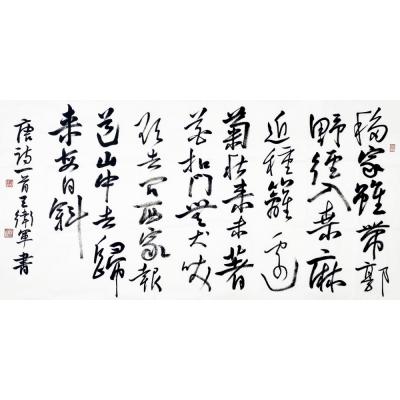 移家雖帶郭
野徑入桑麻
近種籬邊
菊秋來未著
花扣門無犬吠
欲去問西家報
道山中去歸
來每日斜
唐詩一首王衛軍書